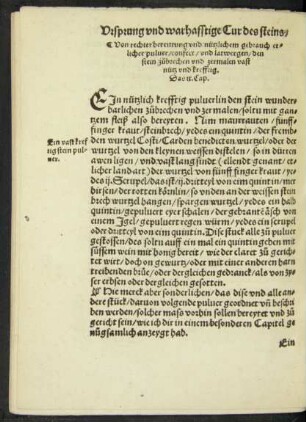 Vrsprung vnd warhafftige Cur des steins,
¶ Von rechter bereitung vnd nützlichem gebrauch et-
licher puluer, confect, vnd latwergen, den
stein zůbrechen vnd zermalen vast
nütz vnd krefftig.
Das ii. Cap.
EIn nützlich krefftig puluer in den stein wunder-
barlichen zůbrechen vnd zermalen, soltu mit gan-
tzem fleiß also bereyten. Nim maurrauten, fünff-
finger kraut, steinbrech, yedes ein quintin, der fremb-
den wurtzel Costi, Carden benedicten wurtzel, oder der
wurtzel von den kleynen weissen disteln, so in dürren
awen ligen, vnd vast lang sindt (ellendt genant, et-
licher landart) der wurtzel von fünff finger kraut, ye-
des ij. Scrupel, das ist ij. dritteyl von eim quintin, der
steinberlin, der rotten bönlin, so vnden an der weissen stein
brech wurtzel hangen, spargen wurtzel, yedes ein halb
quintin, gepuluert eyer schalen, der gebrante åsch von
einem Jgel, gepuluert regen würm, yedes ein scrupel
oder dritteyl von eim quintin. Dise stuck alle zů puluer
gestossen, des soltu auff ein mal ein quintin geben mit
süssem wein mit honig bereit, wie der claret zů gericht
wirt, doch on gewurtz, oder mit einer anderen harn
treibenden brüe, oder dergleichen gedranck, als von zy-
ser erbsen oder dergleichen gesotten.
¶ Die merck aber sonderlichen, das dise vnd alle an-
dere stuck, daruon volgende puluer geordnet vñ beschri-
ben werden, solcher maß vorhin sollen bereytet vnd zů
gericht sein, wie ich dir in einem besonderen Capitel ge
nůgsamlich anzeygt hab.
Ein
Ein vast kref
tig stein pul-
uer.